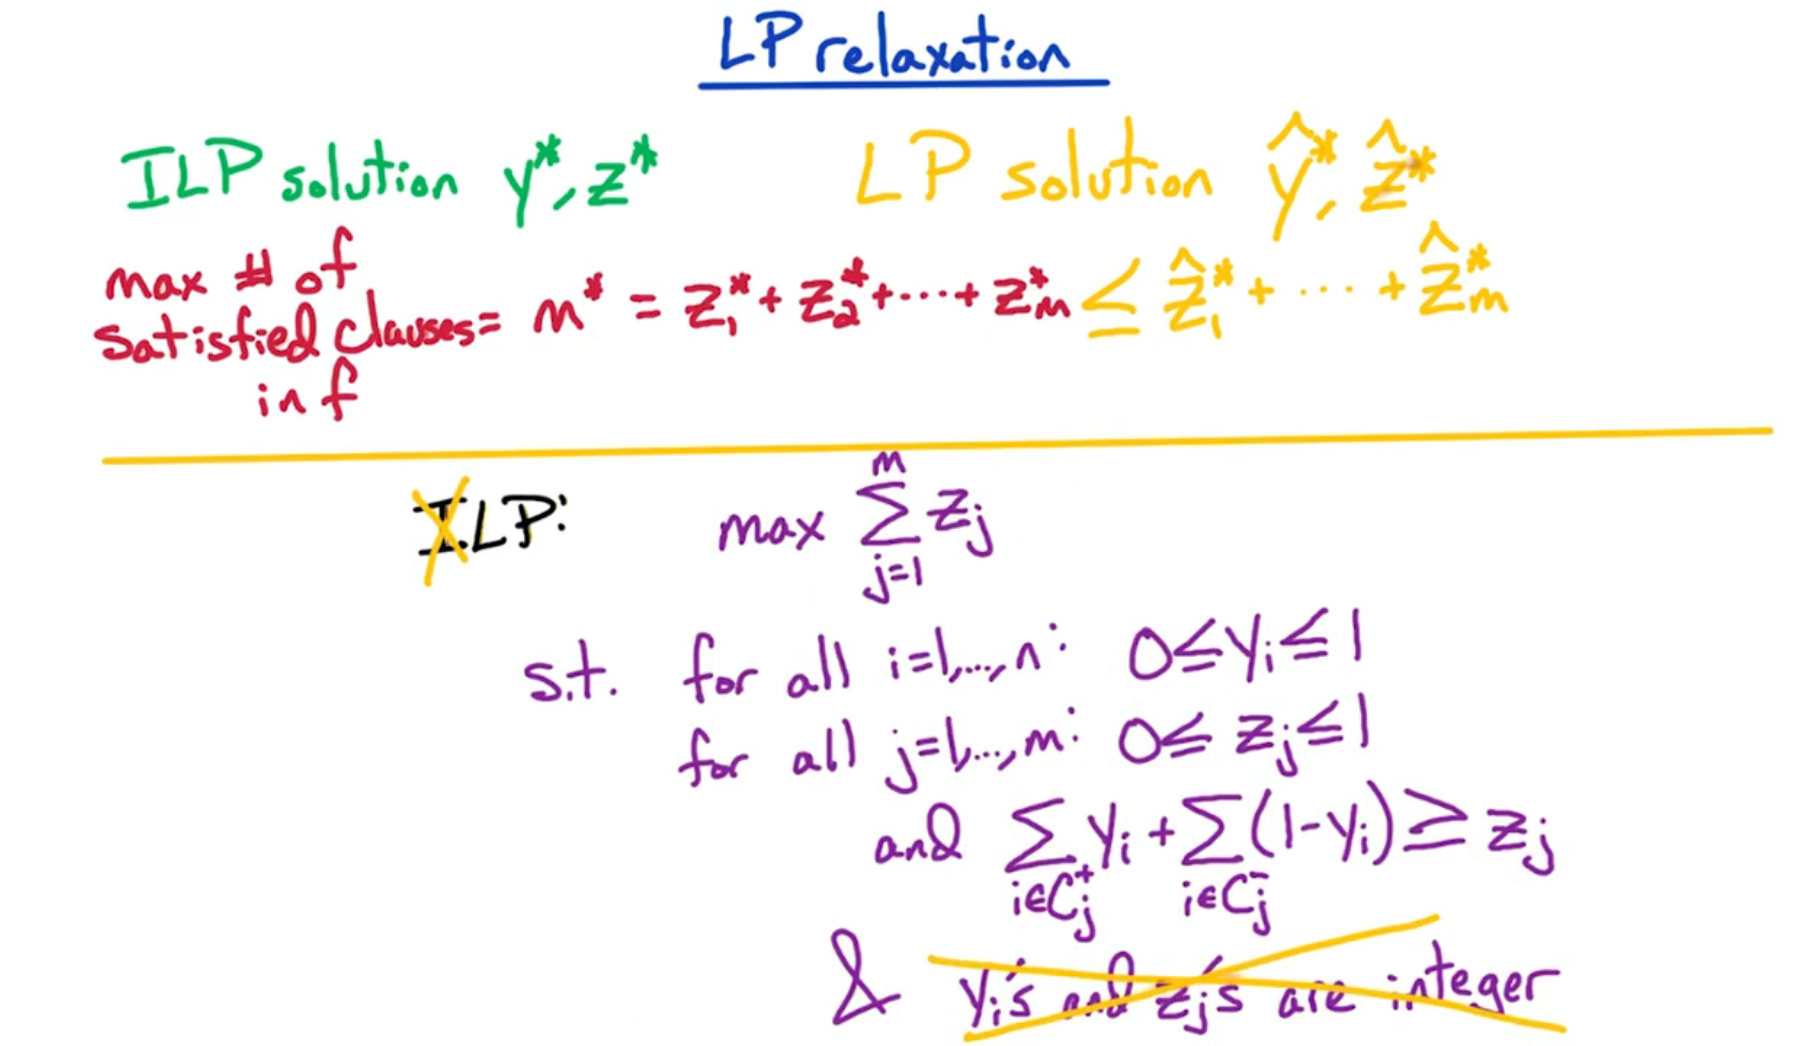 LP relaxation
ILP solution y*, z*
LP solution ŷ*, ẑ*
max # of
satisfied clauses = m* = z₁* + z₂* + ... + zₘ* ≤ ẑ₁* + ... + ẑₘ*
in f
ILP: max ∑_{j=1}^{m} zⱼ
s.t. for all i=1,...,n: 0 ≤ yᵢ ≤ 1
for all j=1,...,m: 0 ≤ zⱼ ≤ 1
and ∑_{i∈Cⱼ⁺} yᵢ + ∑_{i∈Cⱼ⁻} (1-yᵢ) ≥ zⱼ
& yᵢ's and zⱼ's are integer